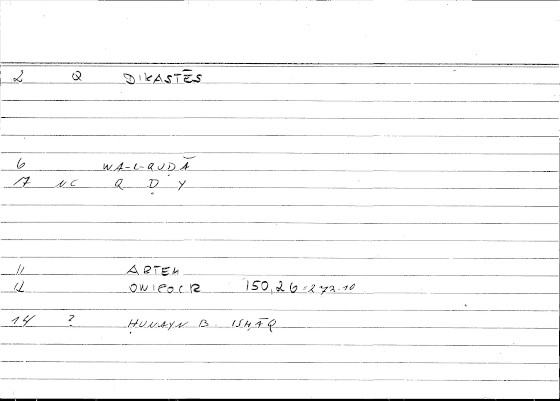 2 Q DIKASTĒS
6 WA-L-QUḌĀ
17 NC Q Ḍ Y
11 ARTEM
12 ONIROCR 150,26 = 272.10
14 ? ḤUNAYN B. ISḤĀQ